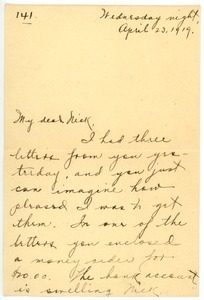 141.
Wednesday night,
April 23, 1919.
My dear Nick,
I had three
letters from you yes-
terday, and you just
can imagine how
pleased I was to get
them. In one of the
letters you enclosed
a money order for
The bank account
is swelling Nick